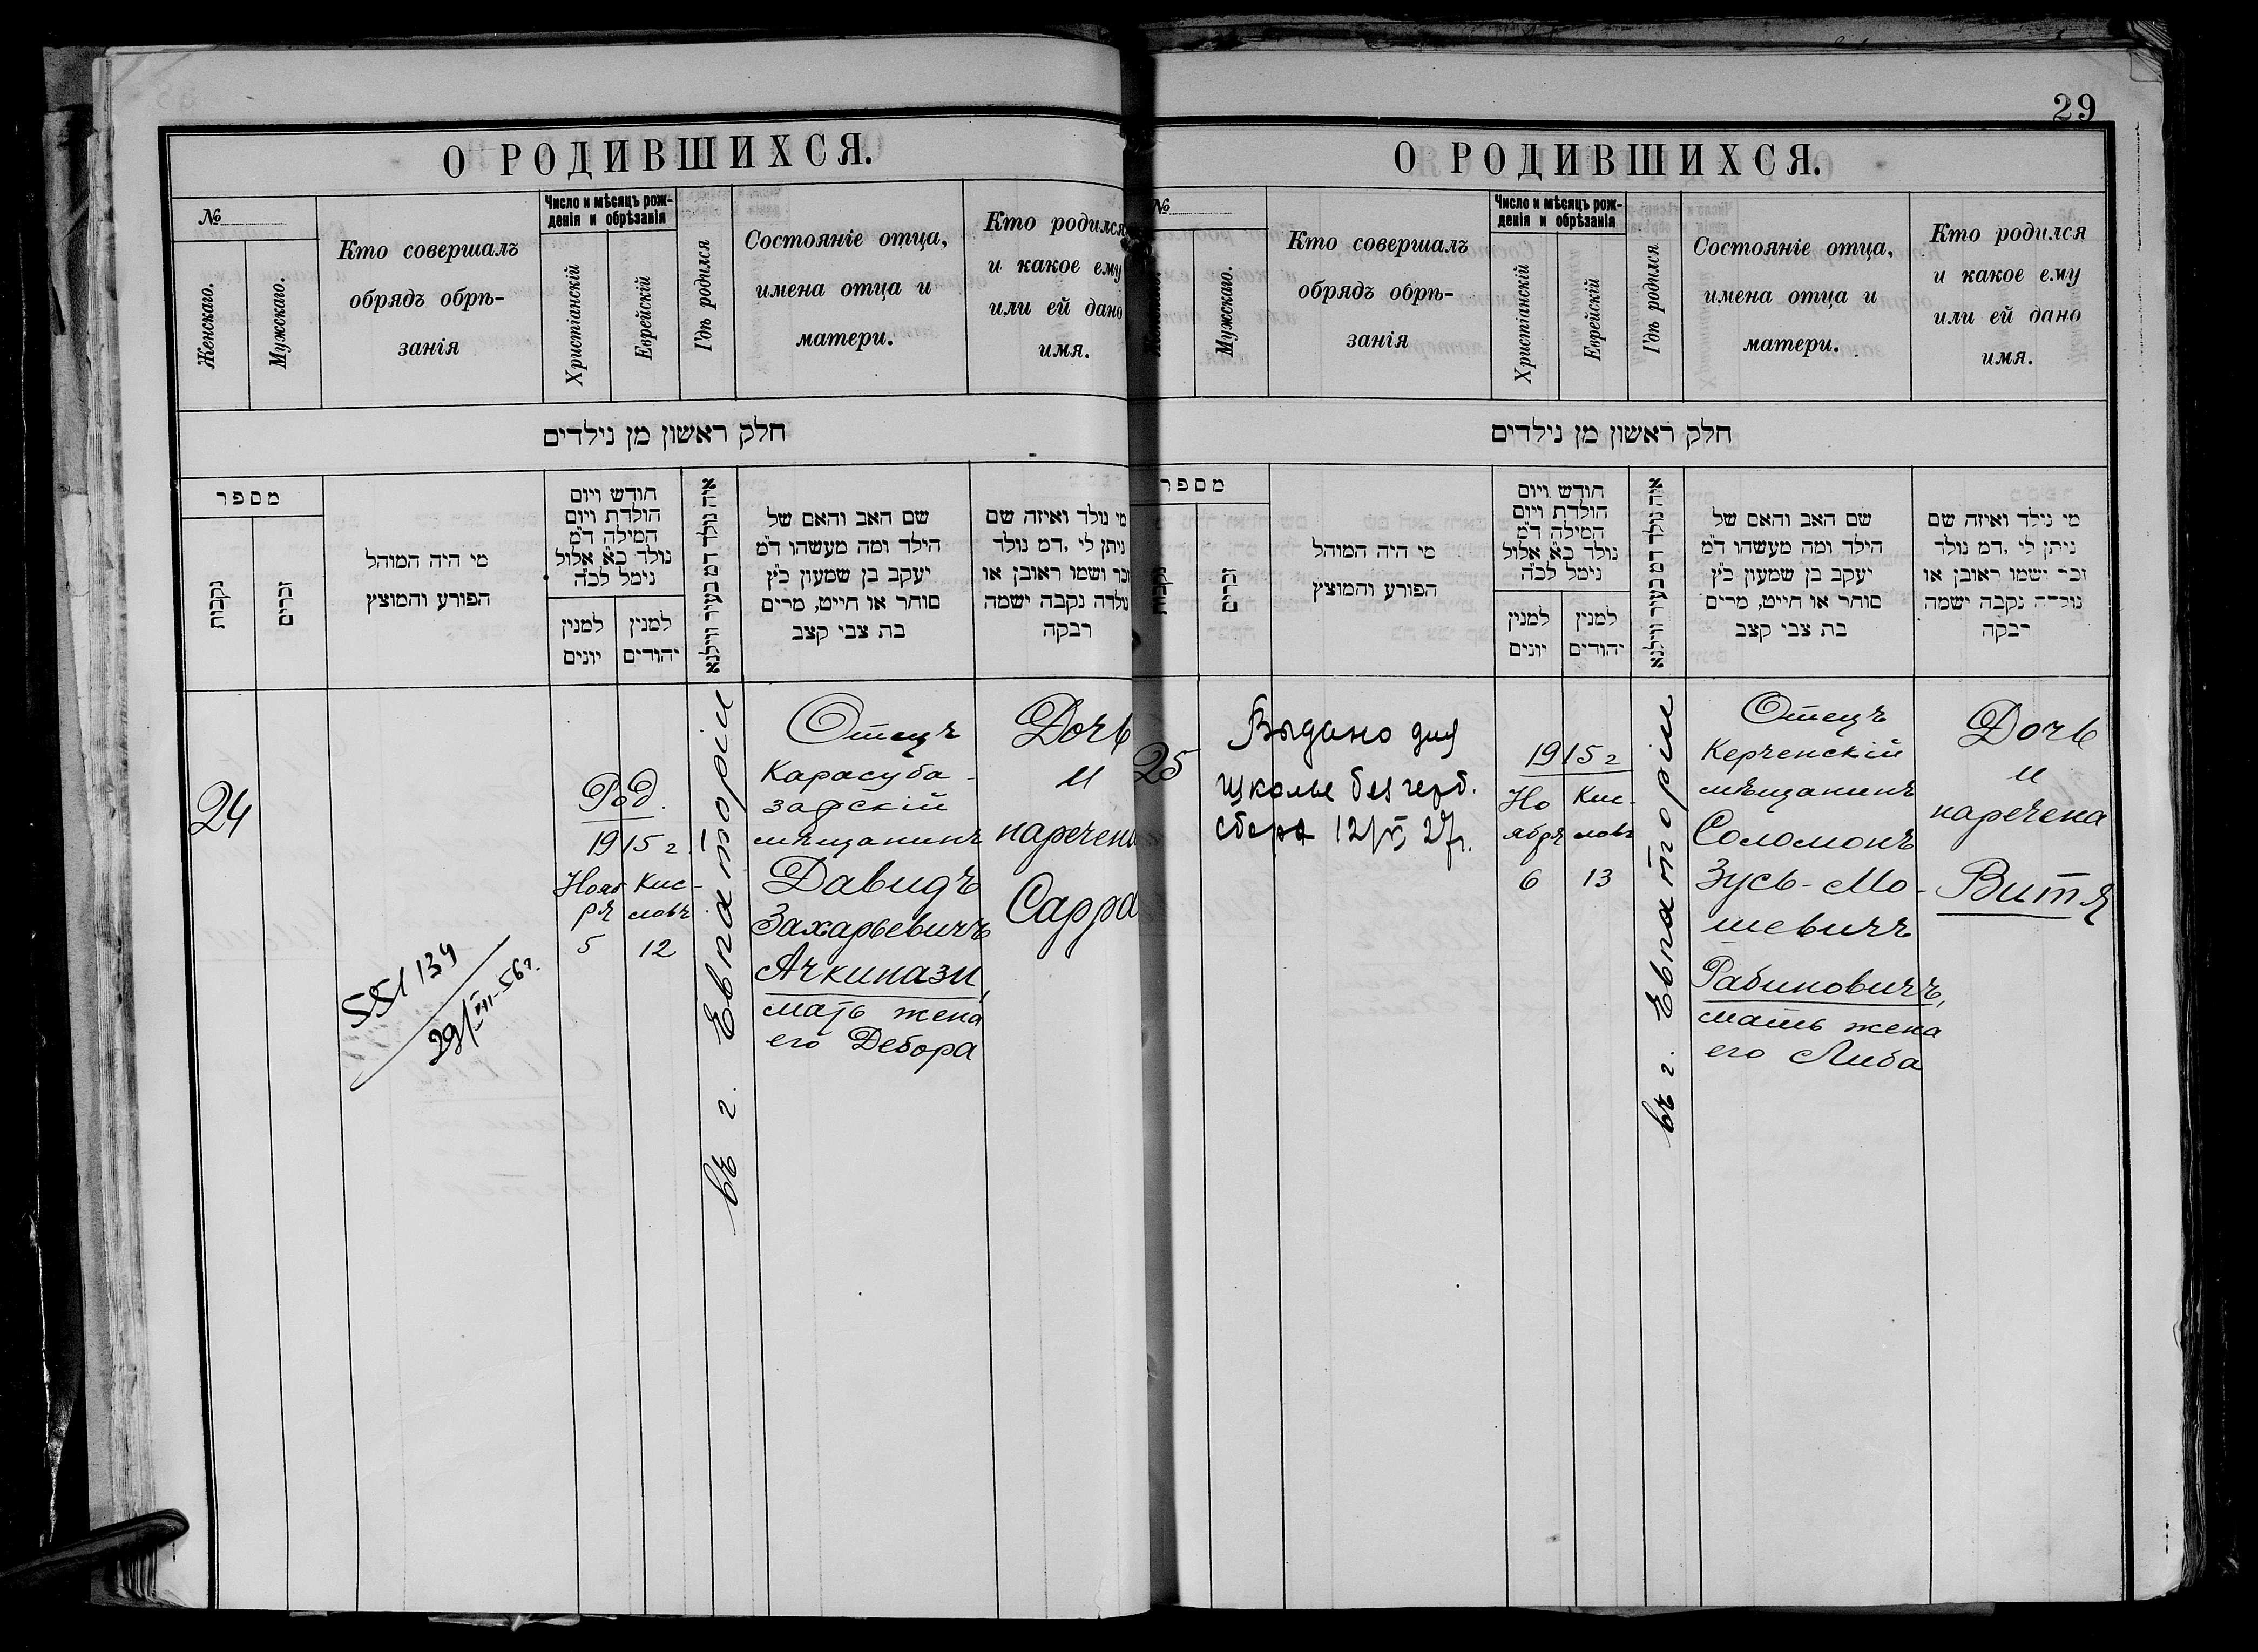 О РОДИВШИХСЯ.
№
Женскаго.
Мужскаго.
Кто совершалъ
обрядъ обрѣ-
занія
Число и мѣсяцъ рож-
денія и обрѣзанія
Христіанскій
Еврейскій
Гдѣ родился
Состояніе отца,
имена отца и
матери.
Кто родился
и какое ему
или ей дано
имя.
חלק ראשון מן נילדים
מספר
נקבות
זכרים
מי היה המוהל
הפורע והמוצץ
חודש ויום
הולדת ויום
המילה ד״מ
נולד כ״א אלול
נימל לכ״ה
למנין
יונים
למנין
יהודים
איה נולד דמ בעיר ווילנא
שם האב והאם של
הילד ומה מעשהו ד״מ
יעקב בן שמעון כ״ץ
סוחר או חייט, מרים
בת צבי קצב
מי נולד ואיזה שם
ניתן לי, דמ נולד
זכר ושמו ראובן או
נולדה נקבה ישמה
רבקה
24
551 139
29/VIII-56г.
Род.
1915 г.
Нояб
ря
5
Кис-
ловъ
12
въ г. Евпаторіи
Отецъ
Карасуба-
зарскій
мѣщанинъ
Давидъ
Захарьевичъ
Ачкинази,
мать жена
его Дебора
Дочь
и
наречена
Сарра
29
О РОДИВШИХСЯ.
№
Женскаго.
Мужскаго.
Кто совершалъ
обрядъ обрѣ-
занія
Число и мѣсяцъ рож-
денія и обрѣзанія
Христіанскій
Еврейскій
Гдѣ родился
Состояніе отца,
имена отца и
матери.
Кто родился
и какое ему
или ей дано
имя.
חלק ראשון מן נילדים
מספר
נקבות
זכרים
מי היה המוהל
הפורע והמוצץ
חודש ויום
הולדת ויום
המילה ד״מ
נולד כ״א אלול
נימל לכ״ה
למנין
יונים
למנין
יהודים
איה נולד דמ בעיר ווילנא
שם האב והאם של
הילד ומה מעשהו ד״מ
יעקב בן שמעון כ״ץ
סוחר או חייט, מרים
בת צבי קצב
מי נילד ואיזה שם
ניתן לי, דמ נולד
זכר ישמו ראובן או
נולדה נקבה ישמה
רבקה
25
Выдано для
школы без герб.
сбора 27г.
1915 г
Но
ябрь
6
Кис-
ловъ
13
въ г. Евпаторіи
Отецъ
Керченскій
мѣщанинъ
Соломонъ
Зусь-Мо-
шевичъ
Рабиновичъ,
мать жена
его Либа
Дочь
и
наречена
Витя